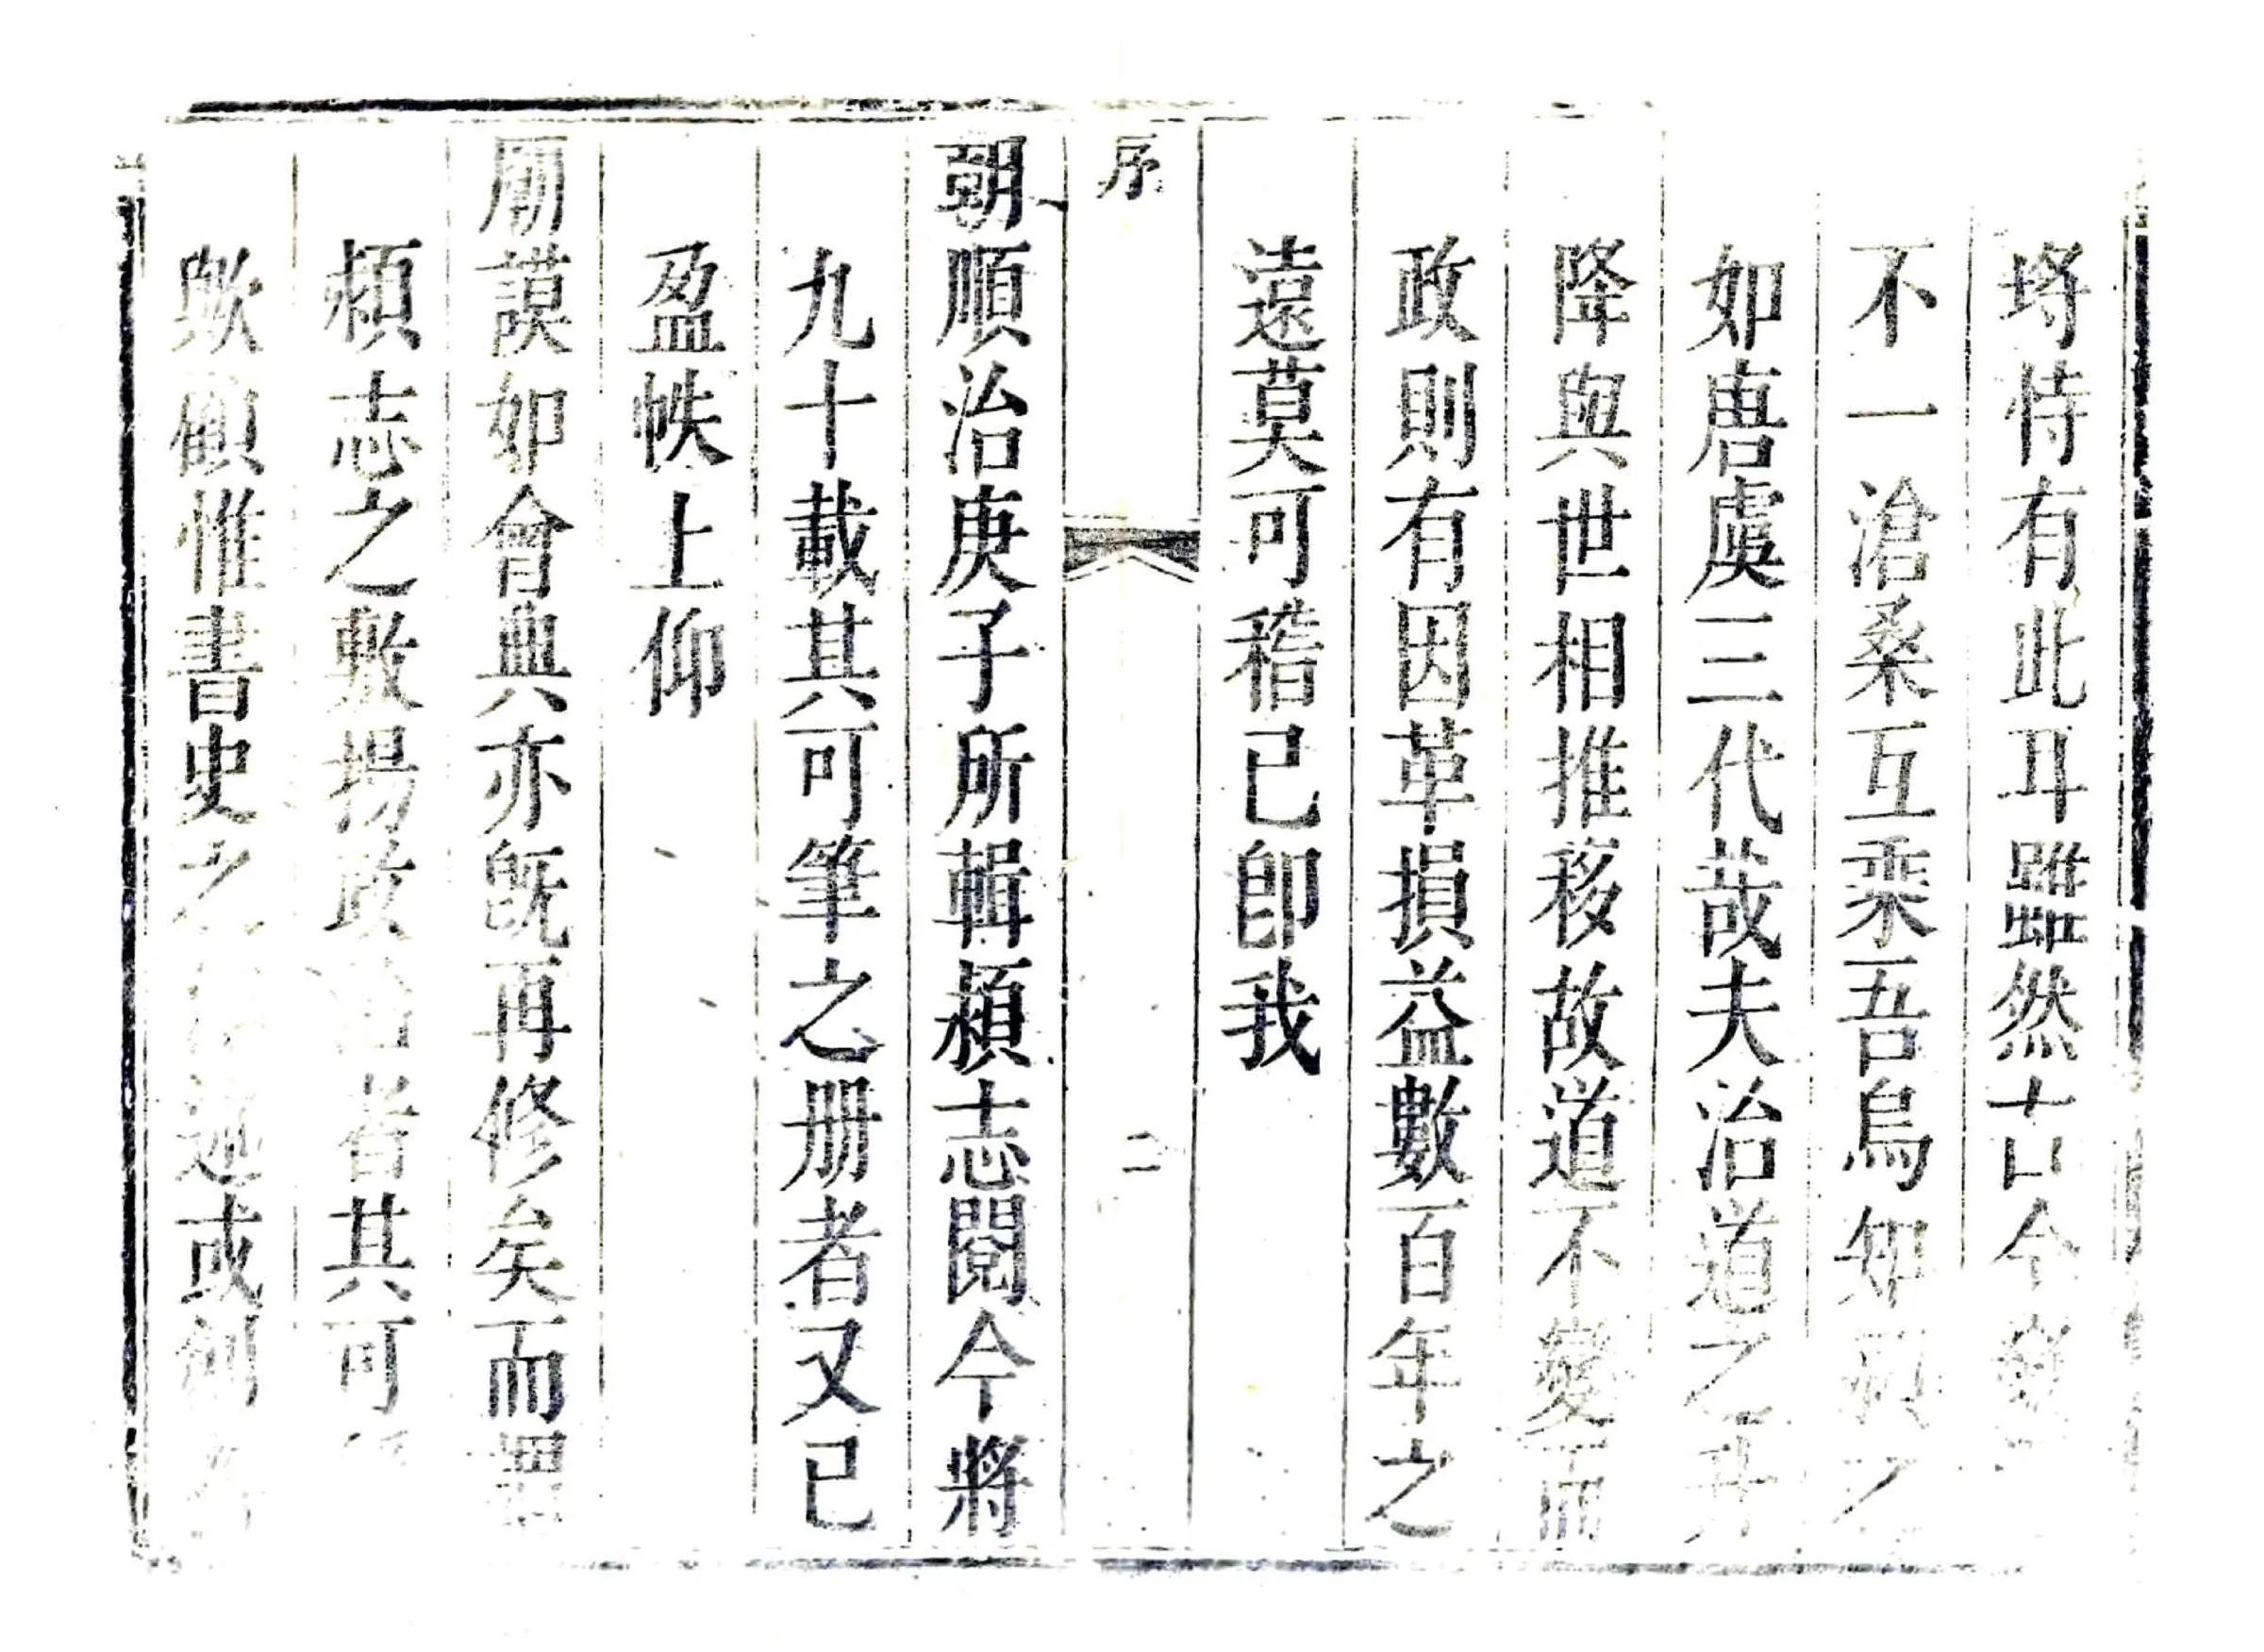 将恃有此耳雖然古今變
不一滄桑互乘吾烏知潁之
如唐虞三代哉夫治道之升
降與世相推移故道不變而
政則有因革損益數百年之
遠莫可稽已卽我
序
二
朝順治庚子所輯潁志閱今將
九十載其可筆之册者又已
盈帙上仰
廟謨如會典亦旣再修矣而
潁志之敷揚政治者其可
歟顧惟書史之述或創